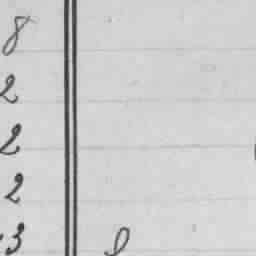 8
2
2
2
3